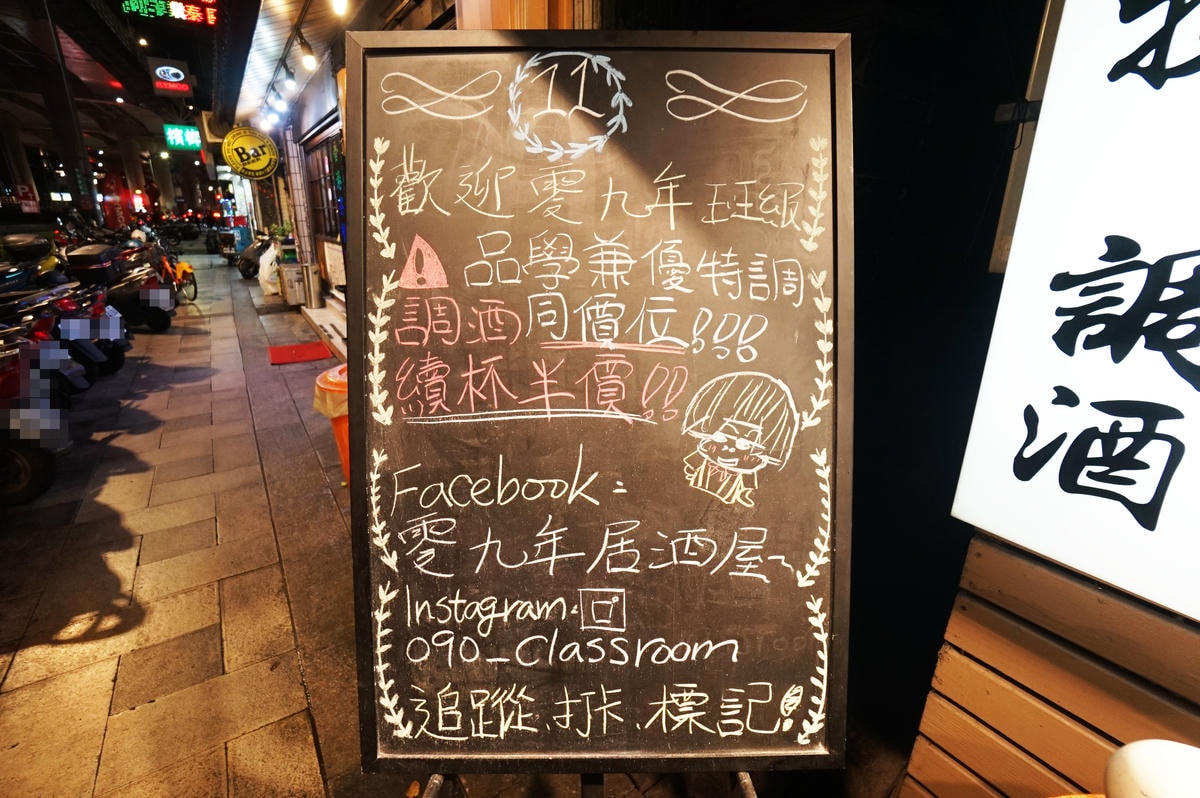 11
歡迎零九年班級
品學兼優特調
調酒同價位!!!
續杯半價!!
Facebook:
零九年居酒屋~
Instagram.
090_Classroom
追蹤、打卡、標記!
Bar
KYMCO
檳榔
P
調
酒